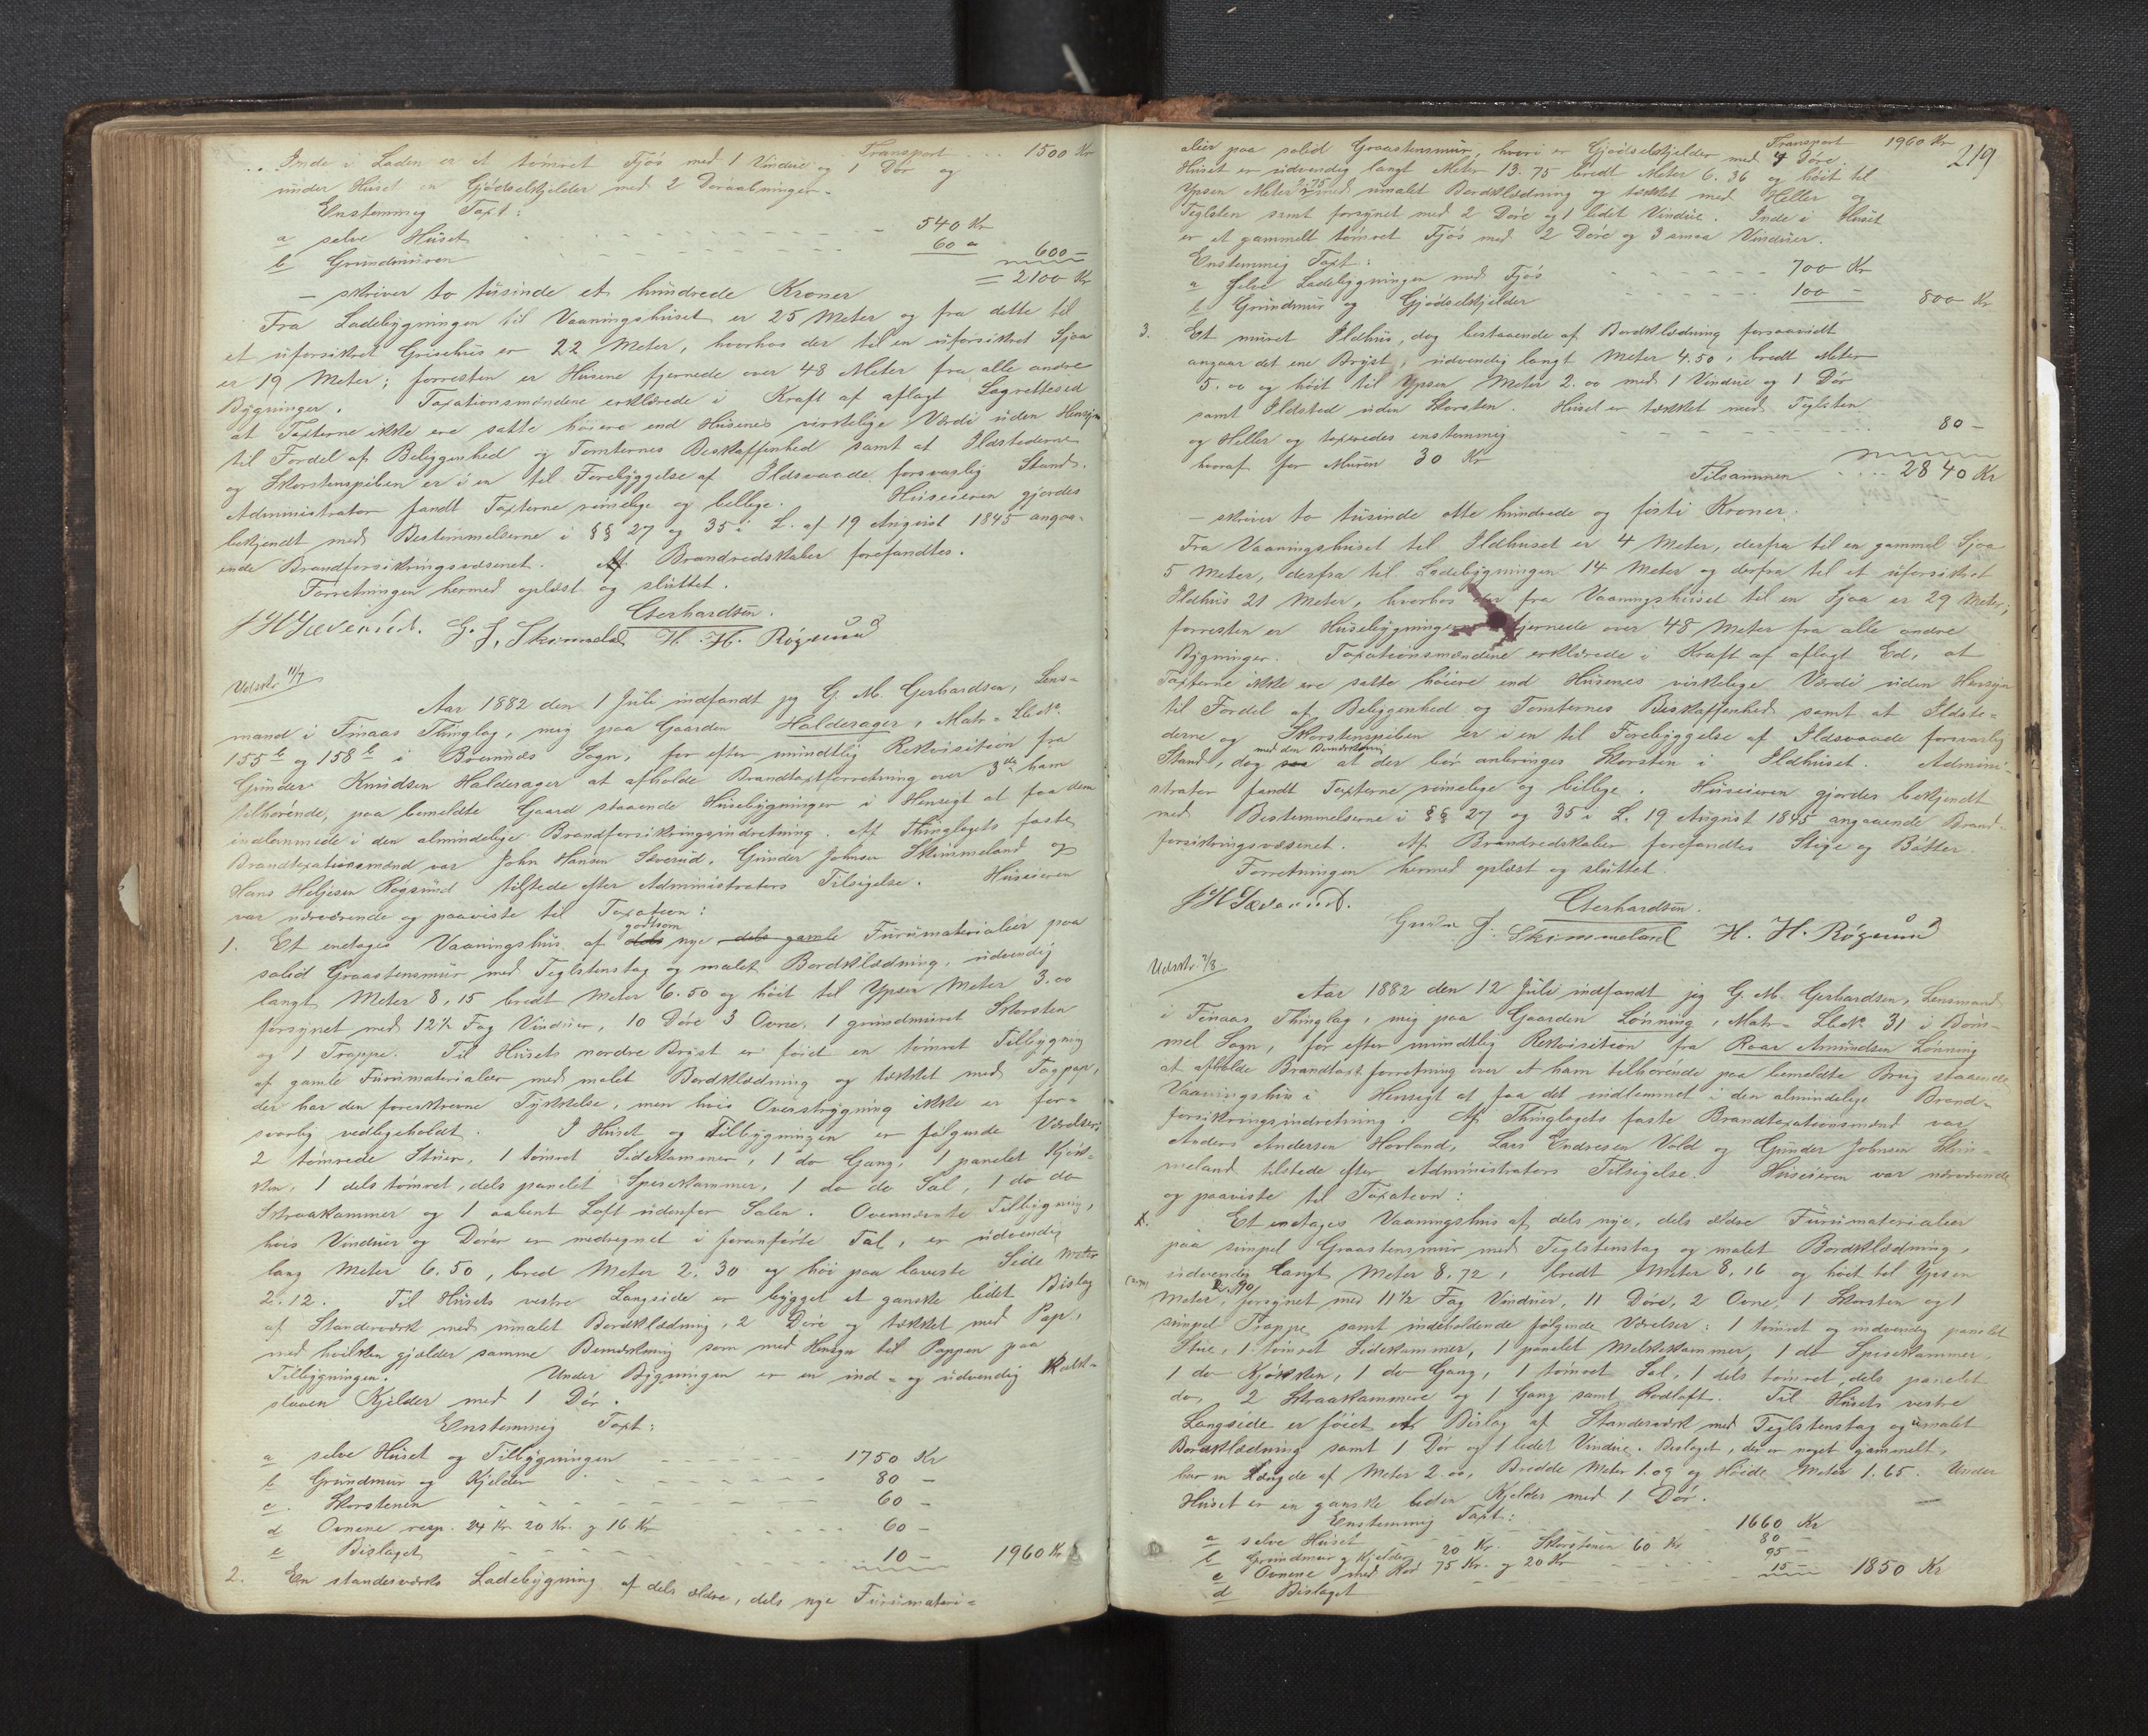 Transport .... 1500 Kr
Inde i Laden er et tømret Fjøs med 1 Vindue og 1 Dør og
under Huset en Gjødselkjelder med 2 Døraabninger.
Enstemmig Taxt:
a selve Huset 540 Kr
b Grundmuren 60 " 600 —
= 2100 Kr
— skriver to tusinde et hundrede Kroner
Fra Ladebygningen til Vaaningshuset er 25 Meter og fra dette til
et uforsikret Grisehus er 22 Meter, hvorhos der til en uforsikret Sjaa
er 19 Meter; forresten er Husene fjernede over 48 Meter fra alle andre
Bygninger. Taxationsmændene erklærede i Kraft af aflagt Lagrettesed
at Taxterne ikke ere satte høiere end Husenes virkelige Værdi uden Hensyn
til Fordel af Beliggenhed og Tomternes Beskaffenhed samt at Ildstederne
og Skorstenspiben er i en til Forebyggelse af Ildsvaade forsvarlig Stand.
Administrator fandt Taxterne rimelige og billige. Huseieren gjordes
bekjendt med Bestemmelserne i §§ 27 og 35 i L. af 19 August 1845 angaa-
ende Brandforsikringsvæsenet. Af Brandredskaber forefandtes.
Forretningen hermed oplæst og sluttet.
Gerhardsen.
J H Sæverud. G. J. Skimmeland H. H. Røgsund
Udskr. 11/7
Aar 1882 den 1 Juli indfandt jeg G. M. Gerhardsen, Lens-
mand i Finaas Thinglag, mig paa Gaarden Halderager, Matr. Lbok
155 b og 158 b i Bremnæs Sogn, for efter mundtlig Rekvisition fra
Gunder Knudsen Halderager at afholde Brandtaxtforretning over 3de ham
tilhørende, paa bemeldte Gaard staaende Husebygninger i Hensigt at faa dem
indlemmede i den almindelige Brandforsikringsindretning. Af Thinglagets faste
Brandtaxationsmænd var John Hansen Sæverud, Gunder Johnsen Skimmeland og
Hans Helgesen Røgsund tilstede efter Administrators Tilsigelse. Huseieren
var nærværende og paaviste til Taxation:
1. Et enetages Vaaningshus af dels godtsom nye dels gamle Furumaterialier paa
solid Graastensmur med Teglstenstag og malet Bordklædning, udvendig
langt Meter 8,15 bredt Meter 6.50 og høit til Ypsen Meter 3.00
forsynet med 12½ Fag Vinduer, 10 Døre 3 Ovne, 1 grundmuret Skorsten
og 1 Trappe. Til Husets nordre Bryst er føiet en tømret Tilbygning
af gamle Furumaterialier med malet Bordklædning og tækket med Tagpap,
der har den foreskrevne Tykkelse, men hvis Overstrygning ikke er for-
svarlig vedligeholdt. I Huset og Tilbygningen er følgende Værelser:
2 tømrede Stuer, 1 tømret Sidekammer, 1 do Gang, 1 panelet Kjøk-
ken, 1 dels tømret, dels panelet Spisekammer, 1 do do Sal, 1 do do
Straakammer og 1 aabent Loft udenfor Salen. Ovennævnte Tilbygning,
hvis Vinduer og Dører er medregnet i foranførte Tal, er udvendig
lang Meter 6.50, bred Meter 2.30 og høi paa laveste Side Meter
2.12. Til Husets vestre Langside er bygget et ganske lidet Bislag
af Standerværk med umalet Bordklædning, 2 Døre og tækket med Pap,
med hvilken gjælder samme Bemærkning som med Hensyn til Pappen paa
Tilbygningen. Under Bygningen er en ind- og udvendig kalk-
slaaen Kjelder med 1 Dør.
Enstemmig Taxt:
a selve Huset og Tilbygningen 1750 Kr
b Grundmur og Kjelder 80 —
c. Skorstenen 60 —
d Ovnene resp. 24 Kr. 20 Kr. og 16 Kr 60 —
e Bislaget 10 — 1960 Kr
2. En standerværks Ladebygning af dels ældre, dels nye Furumateri-
219
Transport 1960 Kr
alier paa solid Graastensmur, hvori er Gjødselkjelder med 4 Døre.
Huset er udvendig langt Meter 13.75 bredt Meter 6.36 og høit til
Ypsen Meter 2.75 med umalet Bordklædning og tækket med Heller og
Teglsten samt forsynet med 2 Døre og 1 lidet Vindue. Inde i Huset
er et gammelt tømret Fjøs med 2 Døre og 3 smaa Vinduer.
Enstemmig Taxt:
a Selve Ladebygningen med Fjøs 700 Kr
b Grundmur og Gjødselkjelder 100 — 800 Kr
3. Et muret Ildhus, dog bestaaende af Bordklædning forsaavidt
angaar det ene Bryst, udvendig langt Meter 4.50, bredt Meter
5.00 og høit til Ypsen Meter 2.00 med 1 Vindue og 1 Dør
samt Ildsted uden Skorsten. Huset er tækket med Teglsten
og Heller og taxeredes enstemmig 80 —
hvoraf for Muren 30 Kr
Tilsammen .... 2840 Kr
— skriver to tusinde otte hundrede og førti Kroner.
Fra Vaaningshuset til Ildhuset er 4 Meter, derfra til en gammel Sjaa
5 Meter, derfra til Ladebygningen 14 Meter og derfra til et uforsikret
Ildhus 21 Meter, hvorhos der fra Vaaningshuset til en Sjaa er 29 Meter;
forresten er Husebygningerne fjernede over 48 Meter fra alle andre
Bygninger. Taxationsmændene erklærede i Kraft af aflagt Ed, at
Taxterne ikke ere satte høiere end Husenes virkelige Værdi uden Hensyn
til Fordel af Beliggenhed og Tomternes Beskaffenhed samt at Ildste-
derne og Skorstenspiben er i en til Forebyggelse af Ildsvaade forsvarlig
Stand, dog med den Bemærkning at der bør anbringes Skorsten i Ildhuset. Admini-
strator fandt Taxterne rimelige og billige. Huseieren gjordes bekjendt
med Bestemmelserne i §§ 27 og 35 i L. 19 August 1845 angaaende Brand-
forsikringsvæsenet. Af Brandredskaber forefandtes Stige og Bøtter.
Forretningen hermed oplæst og sluttet.
Gerhardsen.
J H Sæverud. Gunder J. Skimmeland H. H. Røgsund
Udskr. 7/8
Aar 1882 den 12 Juli indfandt jeg G. M. Gerhardsen, Lensmand
i Finaas Thinglag, mig paa Gaarden Lønning, Matr. Lbok 31 i Bøm-
mel Sogn, for efter mundtlig Rekvisition fra Roar Amundsen Lønning
at afholde Brandtaxtforretning over et ham tilhørende paa bemeldte Brug staaende
Vaaningshus i Hensigt at faa det indlemmet i den almindelige Brand-
forsikringsindretning. Af Thinglagets faste Brandtaxationsmænd var
Anders Andersen Hovland, Lars Endresen Vold og Gunder Johnsen Skim-
meland tilstede efter Administrators Tilsigelse. Huseieren var nærværende
og paaviste til Taxation:
1. Et enetages Vaaningshus af dels nye, dels ældre Furumaterialier
paa simpel Graastensmur med Teglstenstag og malet Bordklædning,
udvendig langt Meter 8.72, bredt Meter 8.16 og høit til Ypsen
Meter 2.90, forsynet med 11½ Fag Vinduer, 11 Døre, 2 Ovne, 1 Skorsten og 1
simpel Trappe samt indeholdende følgende Værelser: 1 tømret og indvendig panelet
Stue, 1 tømret Sidekammer, 1 panelet Melkekammer, 1 do Spisekammer,
1 do Kjøkken, 1 do Gang, 1 tømret Sal, 1 dels tømret, dels panelet
do, 2 Straakammere og 1 Gang samt Rodloft. Til Husets vestre
Langside er føiet et Bislag af Standerværk med Teglstenstag og umalet
Bordklædning samt 1 Dør og 1 lidet Vindue. Bislaget, der er noget gammelt,
har en Længde af Meter 2.00, Bredde Meter 1.09 og Høide Meter 1.65. Under
Huset er en ganske liden Kjelder med 1 Dør.
Enstemmig Taxt:
a selve Huset 1660 Kr
b Grundmur og Kjelder 20 Kr. Skorstenen 60 Kr 80 —
c Ovnene med Rør 75 Kr. og 20 Kr 95 —
d Bislaget 15 — 1850 Kr